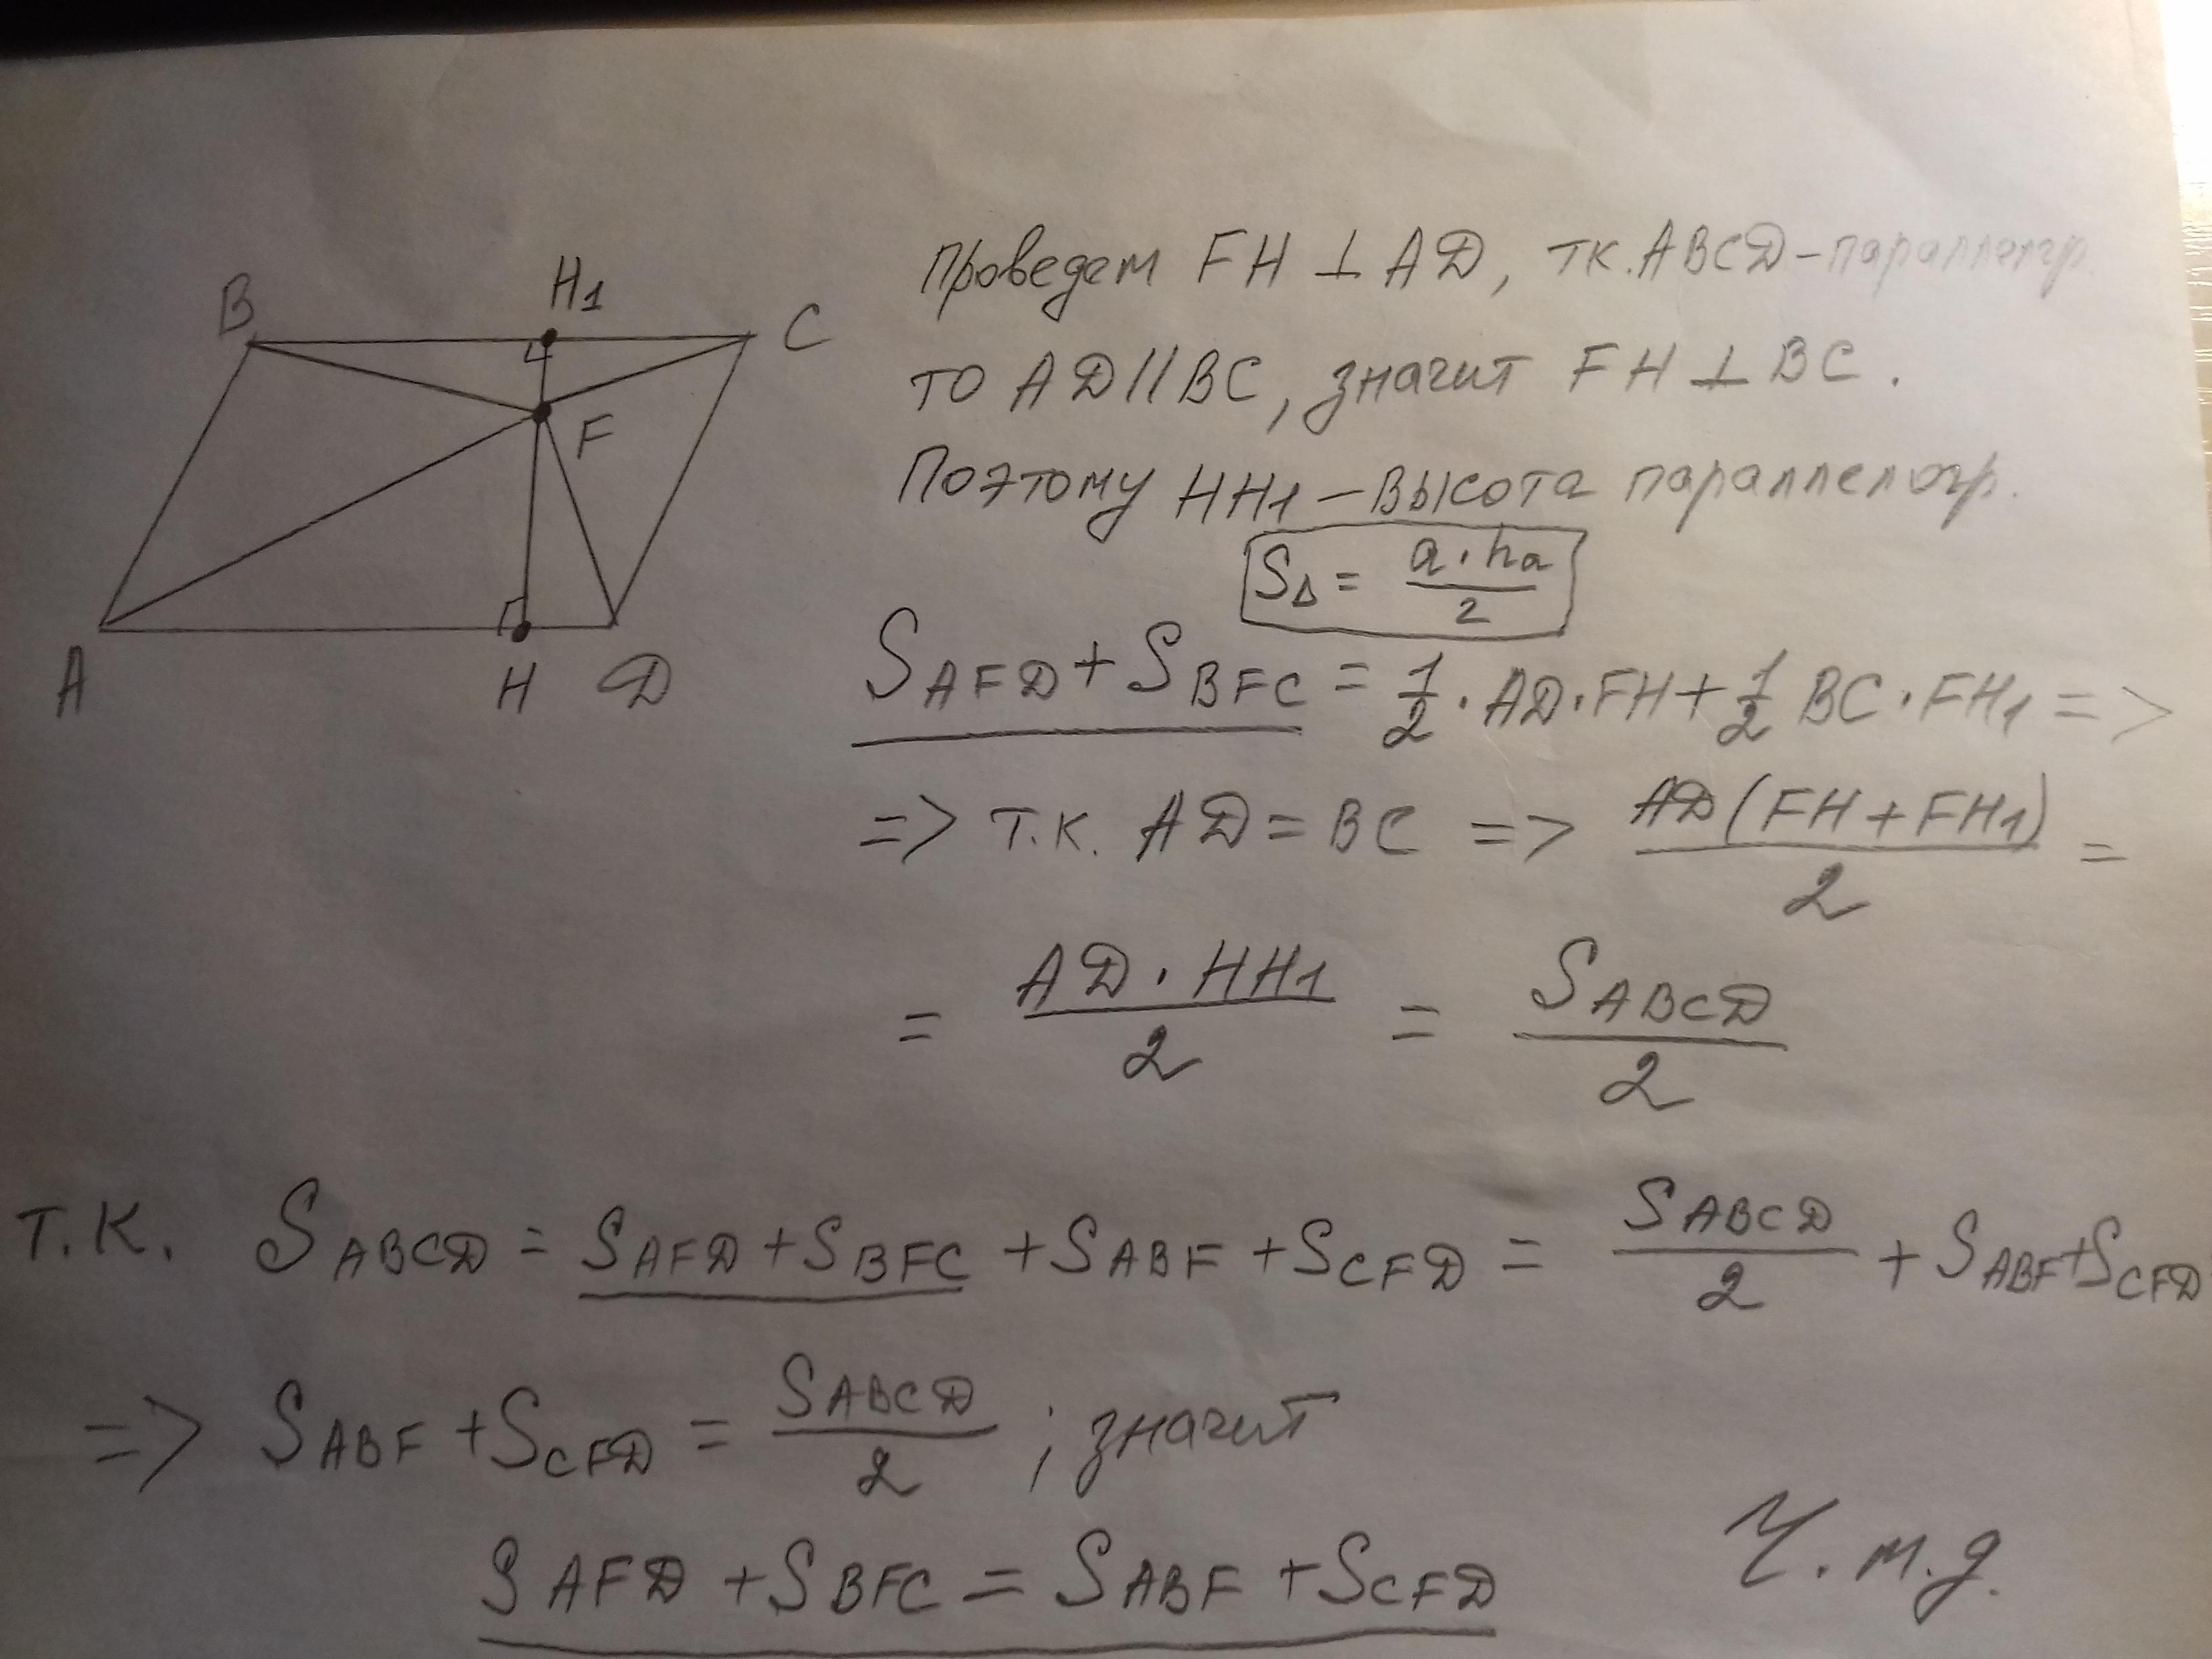 B
H1
C
F
A
H
D
Проведем FH ⊥ AD, тк. ABCD-параллегр
то AD||BC, значит FH ⊥ BC.
Поэтому HH1 – высота параллелогр.
S∆ = a·ha/2
SAFD + SBFC = 1/2 · AD · FH + 1/2 BC · FH1 =>
=> т.к. AD = BC => AD(FH + FH1)/2 =
= AD · HH1/2 = SABCD/2
т.к. SABCD = SAFD + SBFC + SABF + SCFD = SABCD/2 + SABF + SCFD
=> SABF + SCFD = SABCD/2 ; значит
SAFD + SBFC = SABF + SCFD
Ч.т.д.